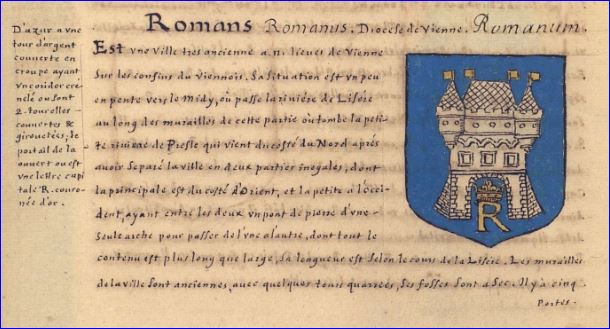 Romans Romanus. Diocese de Vienne. Romanum.
D'azur a vne
tour d'argent
couverte en
croupe ayant
vn coridor cre-
nelé ou sont
2. tourelles
couvertes &
girouetées; le
portail de la
ouvert ou est
vne lettre capi
tale R. couro-
née d'or.
Est vne ville tres ancienne a .n. lieues de Vienne
Sur les confins du Viennois. Sa Situation est vn peu
en pente vers le Midy, ou passe la riviere de Lisere
au long des murailles de cette partie ou tombe la peti-
te riviere de Presle qui vient du costé du Nord aprés
avoir Separé la ville en deux parties inegales, dont
la principale est du costé d'Orient, et la petite a l'occi-
dent, ayant entre les deux vn pont de pierre d'vne
Seule arche pour passer de l'vne a l'autre, dont tout le
contenu est plus long que large, Sa longueur est Selon le cours de la Lisere. Les murailles
de la ville Sont anciennes, avec quelques tours quarrées, Ses fosses Sont a Sec. Il y a cinq
Portes.
R